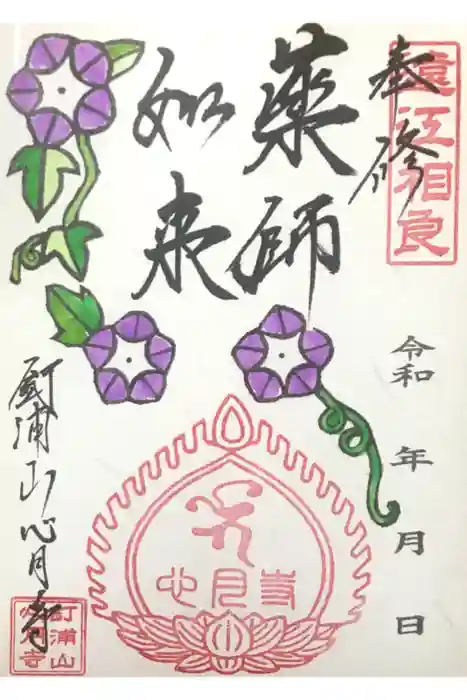 奉修
遠江相良
薬師
如来
令和 年 月 日
心月寺
釘浦山心月寺
釘浦山
心月寺